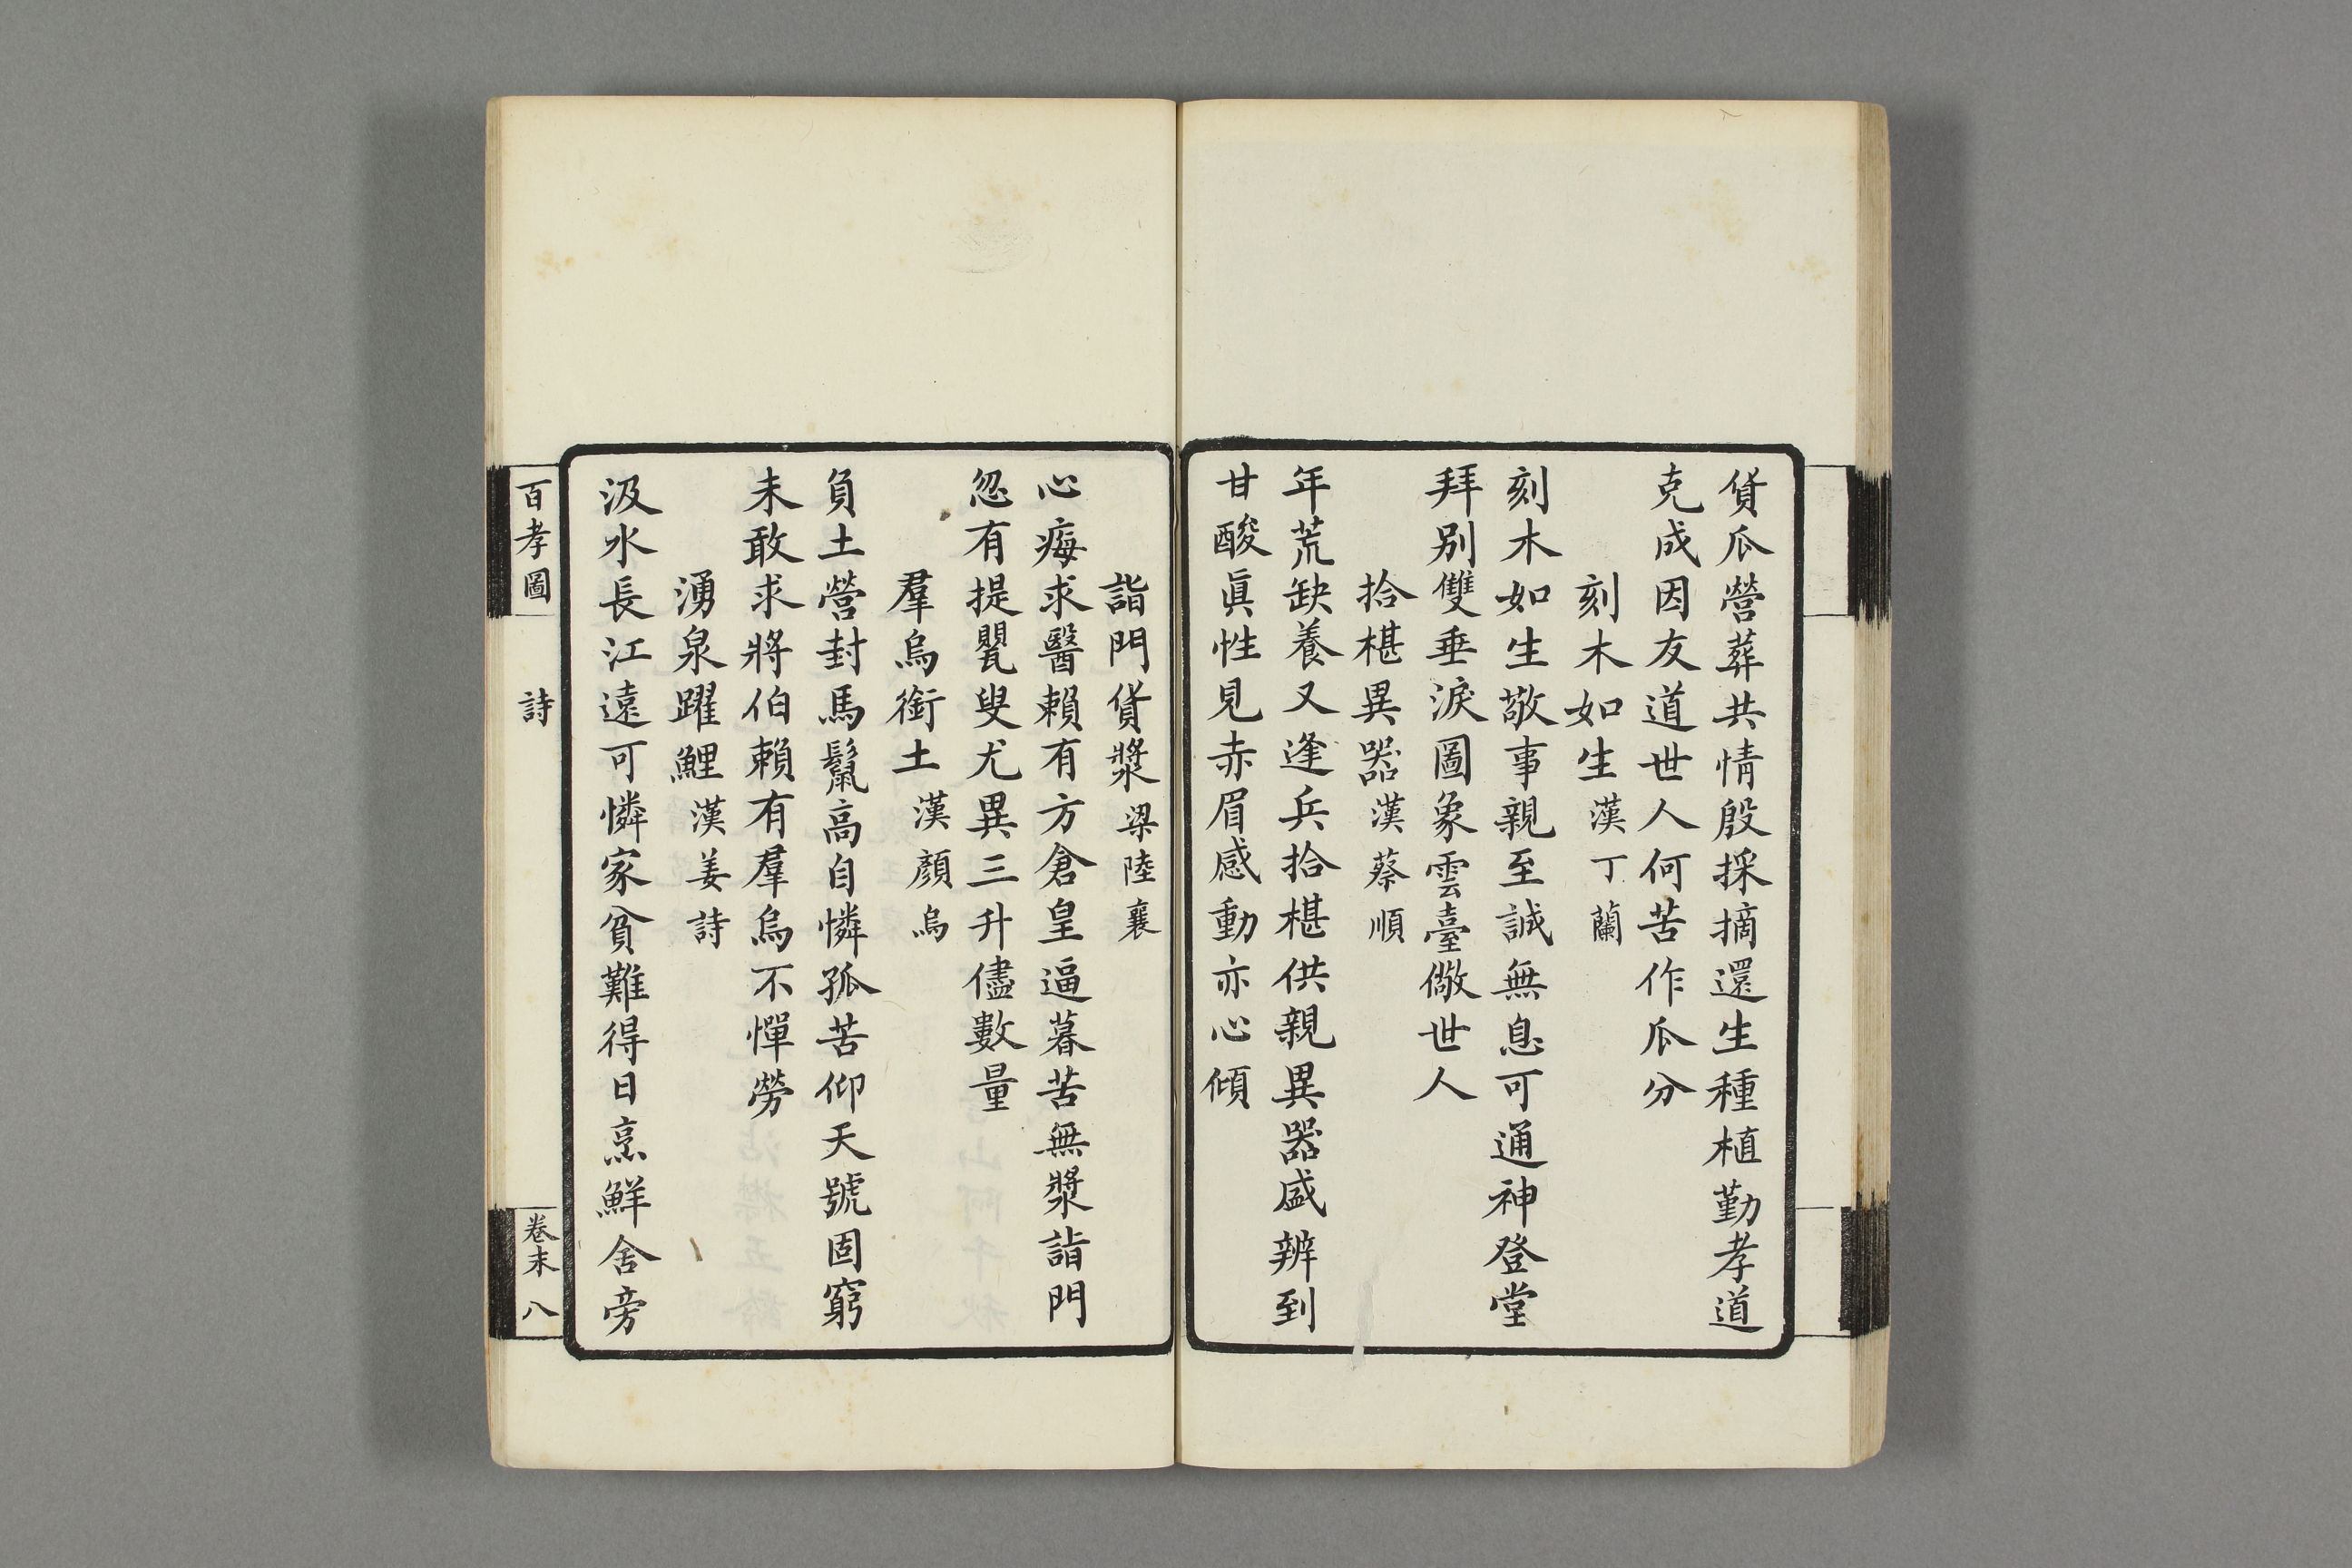 貨瓜營葬共情殷採摘還生種植勤孝道
克成因友道世人何苦作瓜分
刻木如生漢丁蘭
刻木如生敬事親至誠無息可通神登堂
拜別雙垂淚圖象雲臺儆世人
拾椹異器漢蔡順
年荒缺養又逢兵拾椹供親異器盛辨到
甘酸眞性見赤眉感動亦心傾
詣門貨漿梁陸襄
心痗求醫賴有方倉皇逼暮苦無漿詣門
忽有提甖叟尤異三升儘數量
羣烏銜土漢顏烏
負土營封馬鬣高自憐孤苦仰天號固窮
未敢求將伯賴有羣烏不憚勞
湧泉躍鯉漢姜詩
汲水長江遠可憐家貧難得日烹鮮舍旁
百孝圖
詩
卷末 八